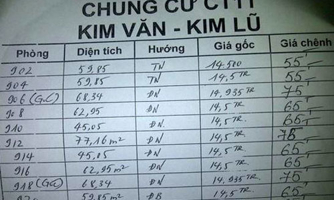 CHUNG CƯ CT11
KIM VĂN - KIM LŨ
Phòng Diện tích Hướng Giá gốc Giá chênh
902 59,85 TN 14.500 55
904 59,85 TN 14,5TR 55
906 (GC) 68,34 ĐN 14,935TR 75
908 62,95 ĐN 14,5TR 65
910 45,05 ĐN 14,5TR 65
912 77,16 m² ĐN 14,5TR 75
914 45,05 ĐN 14,5TR 65
916 62,95 m² ĐN 14,5TR 65
918 (GC) 68,34 ĐN 14,935TR 75
59,85 m² ĐB 14,5TR 65